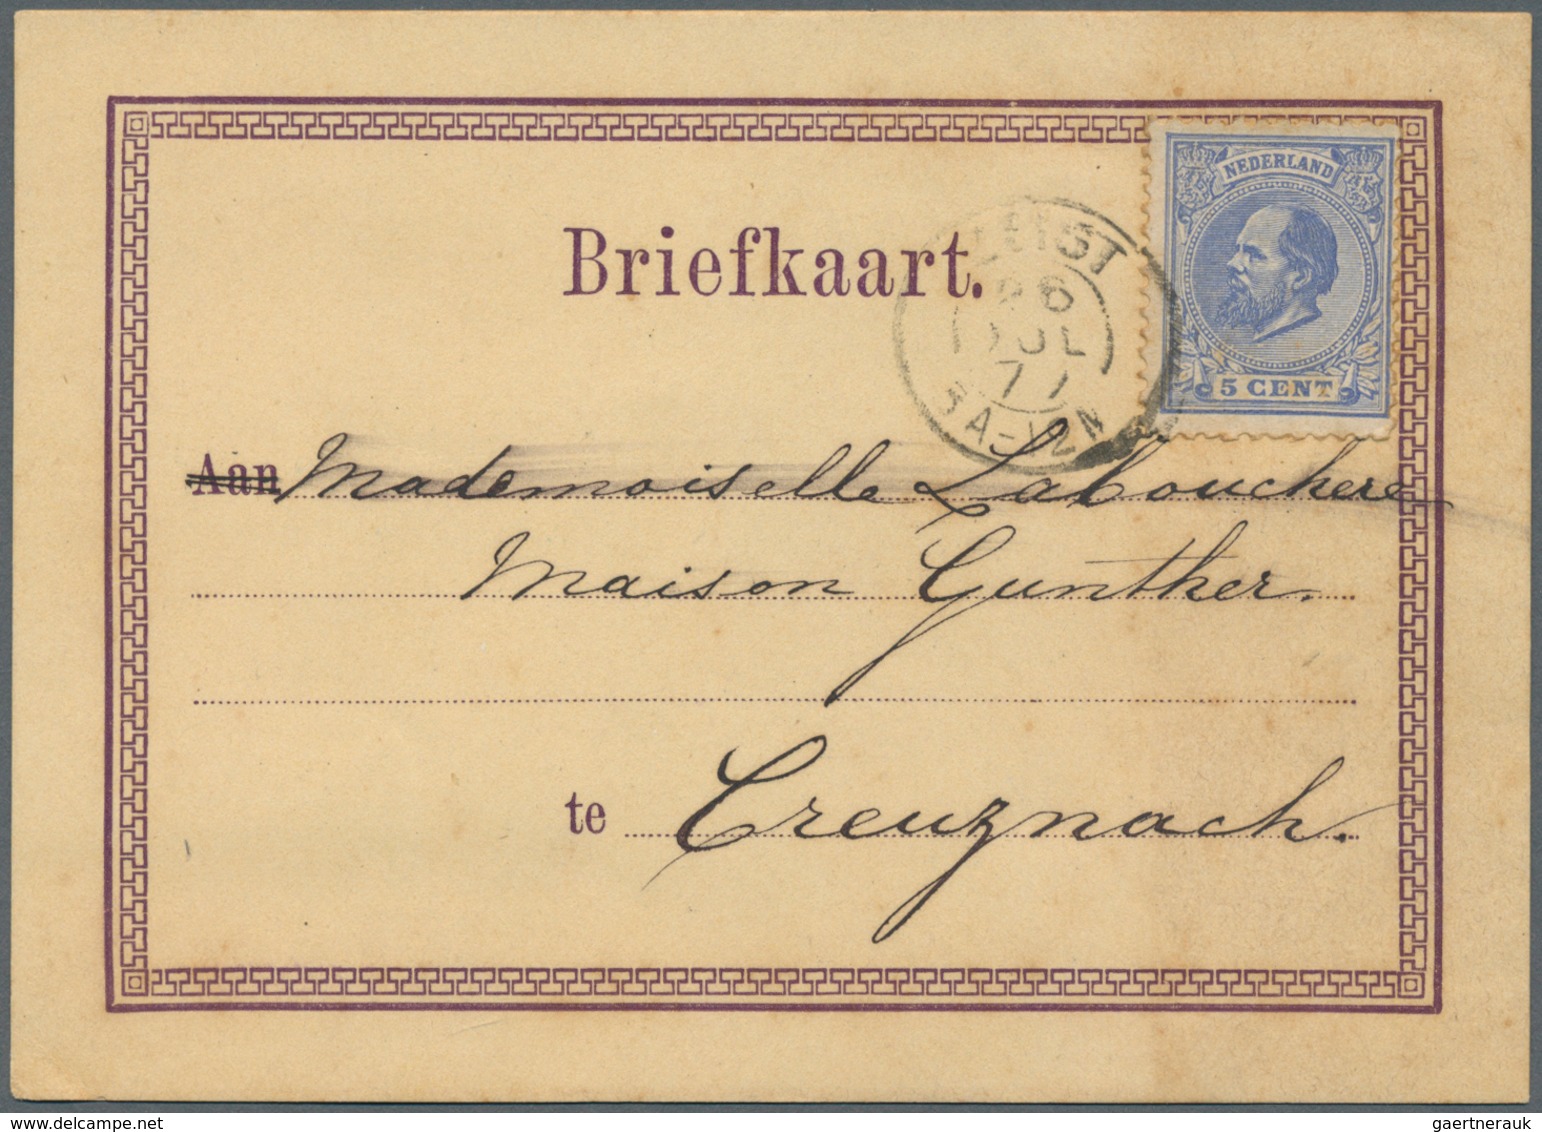 NEDERLAND
Briefkaart.
ZEIST
26
JUL
77
8A-12N
5 CENT
Aan Mademoiselle Labouchere
Maison Gunther.
te Creuznach.
gaertnerauk@delcampe.net